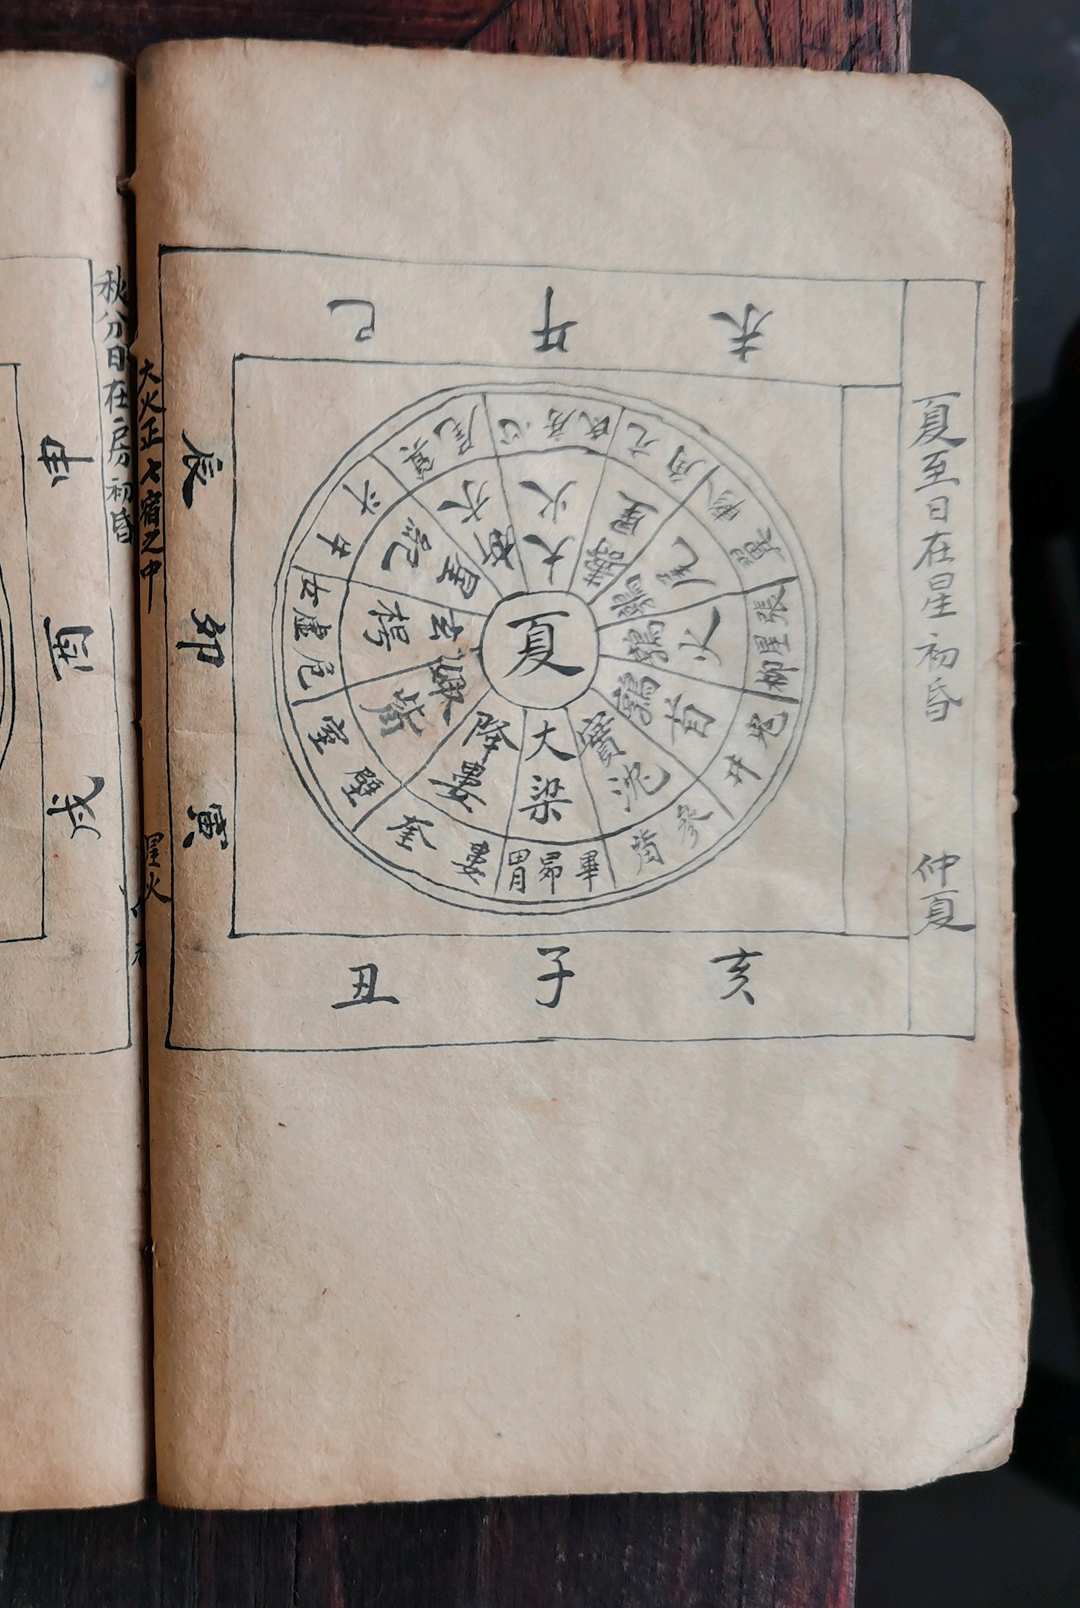 夏至日在星初昏
仲夏
未
午
巳
辰
卯
寅
丑
子
亥
夏
大梁
降婁
娵訾
玄枵
星紀
析木
大火
壽星
鶉尾
鶉火
鶉首
實沈
胃昴畢
奎婁
室壁
女虛危
斗牛
尾箕
氐房心
角亢
翼軫
柳星張
井鬼
觜參
大火正七宿之中
星火
秋分日在房初昏
申
酉
戌